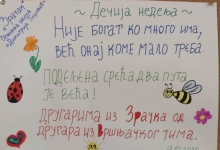 ~ Дечија недеља ~
Није богат ко много има,
већ онај коме мало треба.
Подељена срећа два пута
је већа!
Другарима из Зрачка од
другара из Вршњачког тима.